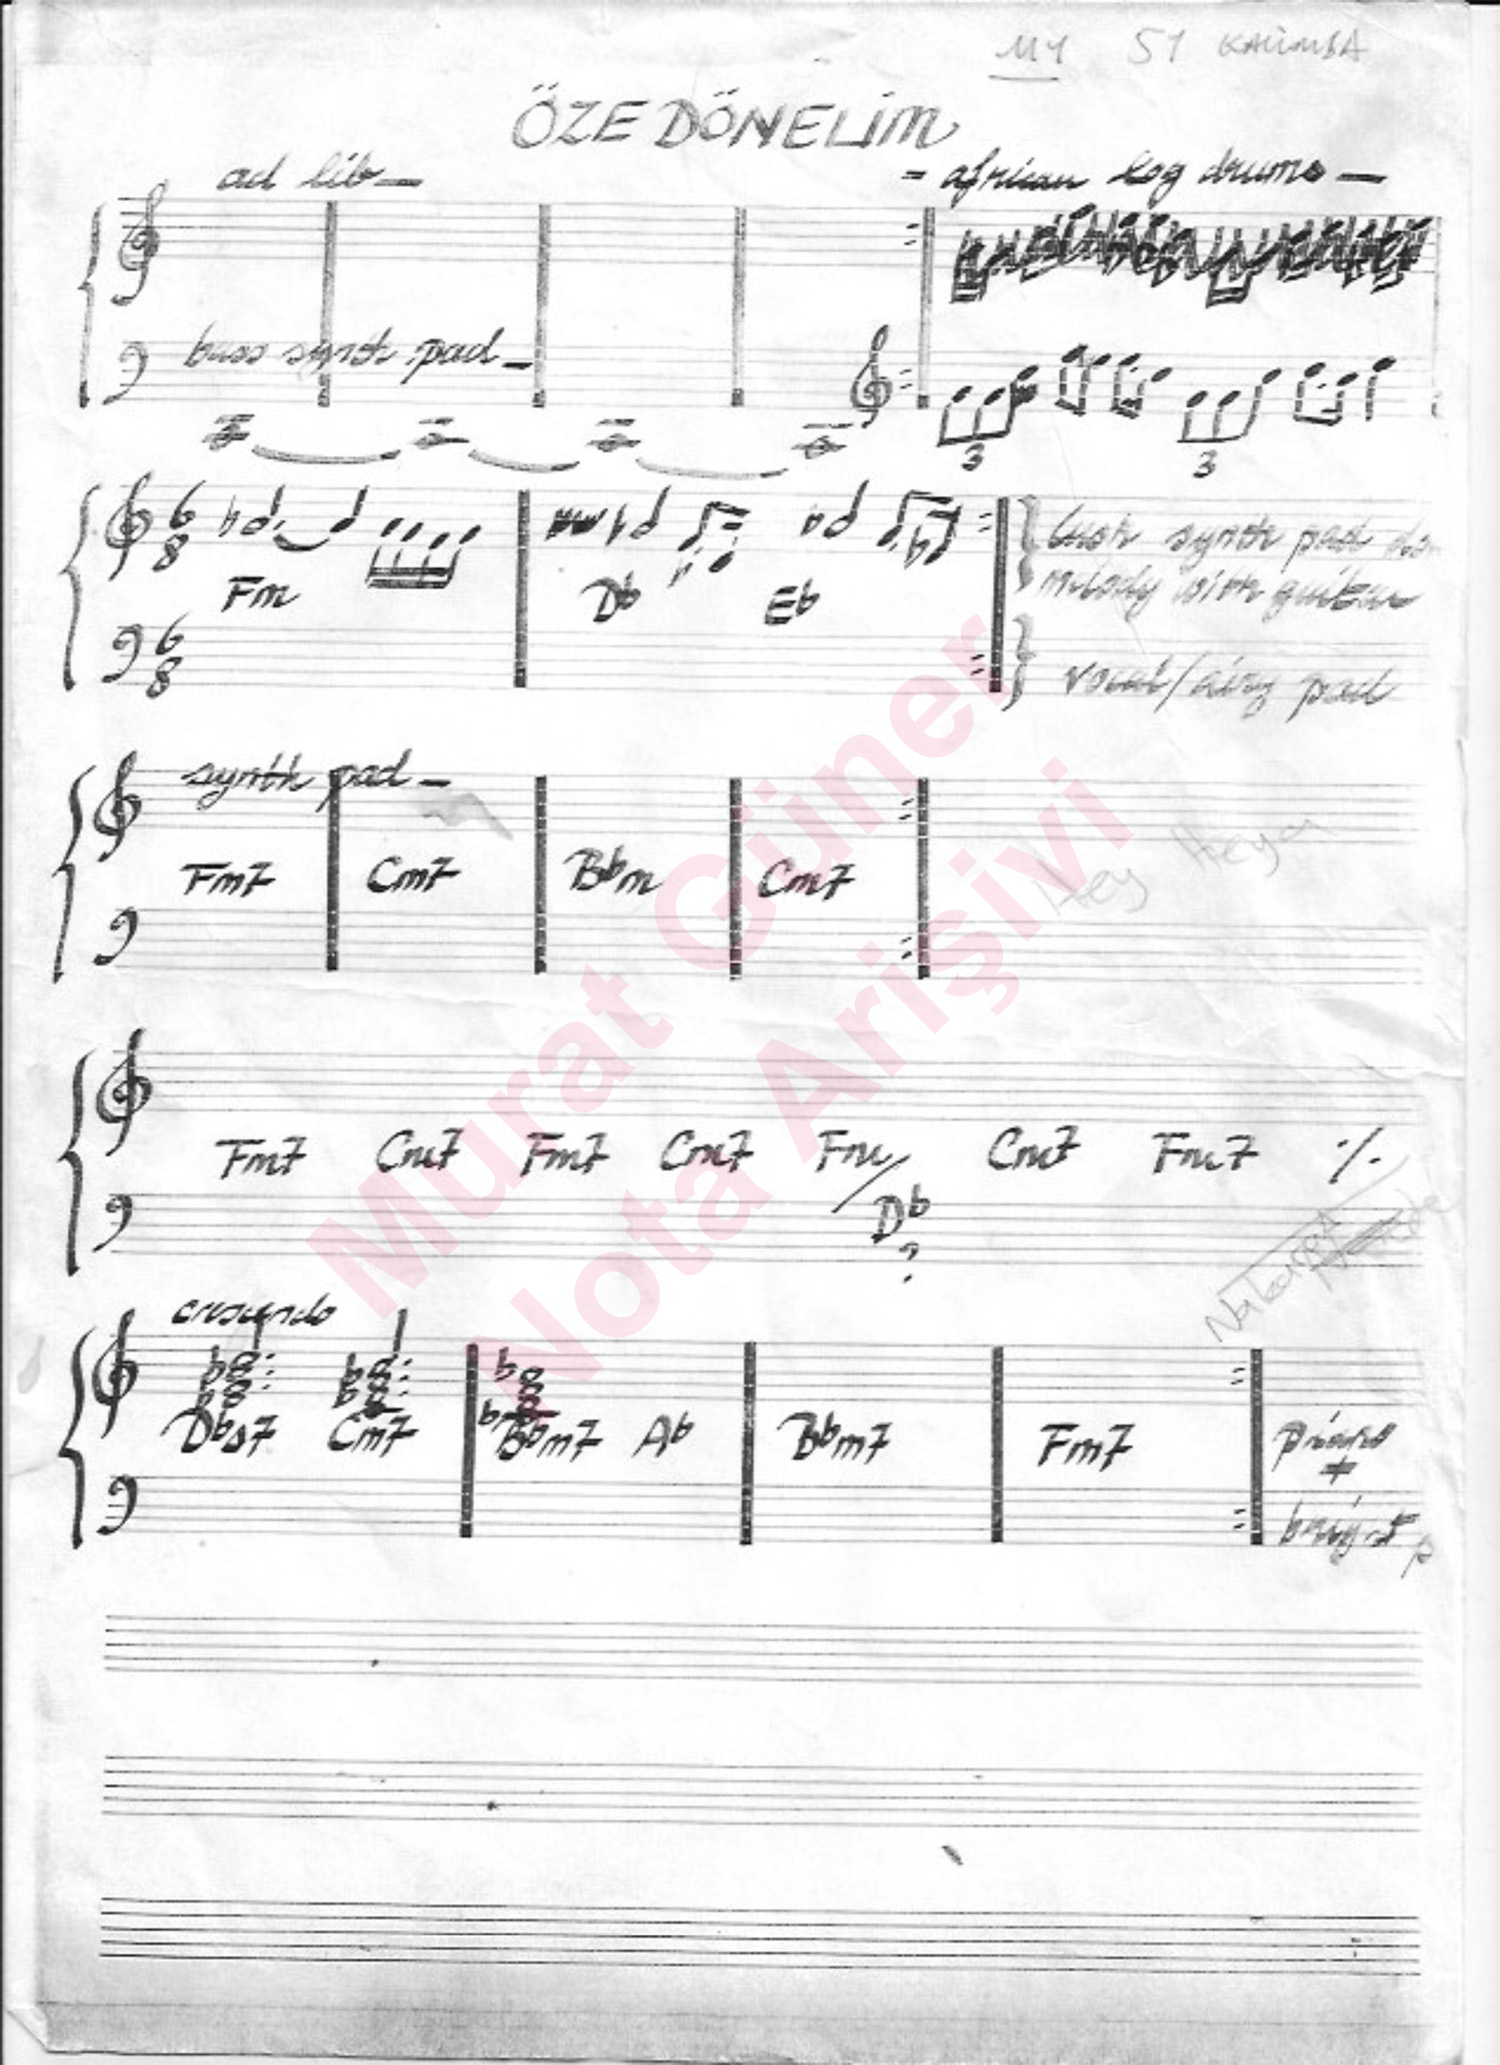 M1 51 KALIMBA
ÖZE DÖNELİM
ad lib — african log drums —
bass synth pad —
3 3
6 8
Fm Db Eb
6 8
lush synth pad
melody with guitar
vocal/airy pad
synth pad —
Fm7 Cm7 Bbm Cm7
Hey Heya
Fm7 Cm7 Fm7 Cm7 Fm/Db Cm7 Fm7 ٪
?
Nakarat
crescendo
DbΔ7 Cm7 Bbm7 Ab Bbm7 Fm7 piano
+
Murat Güner
Nota Arişivi